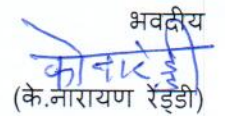 भवदीय
(के.नारायण रेड्डी)